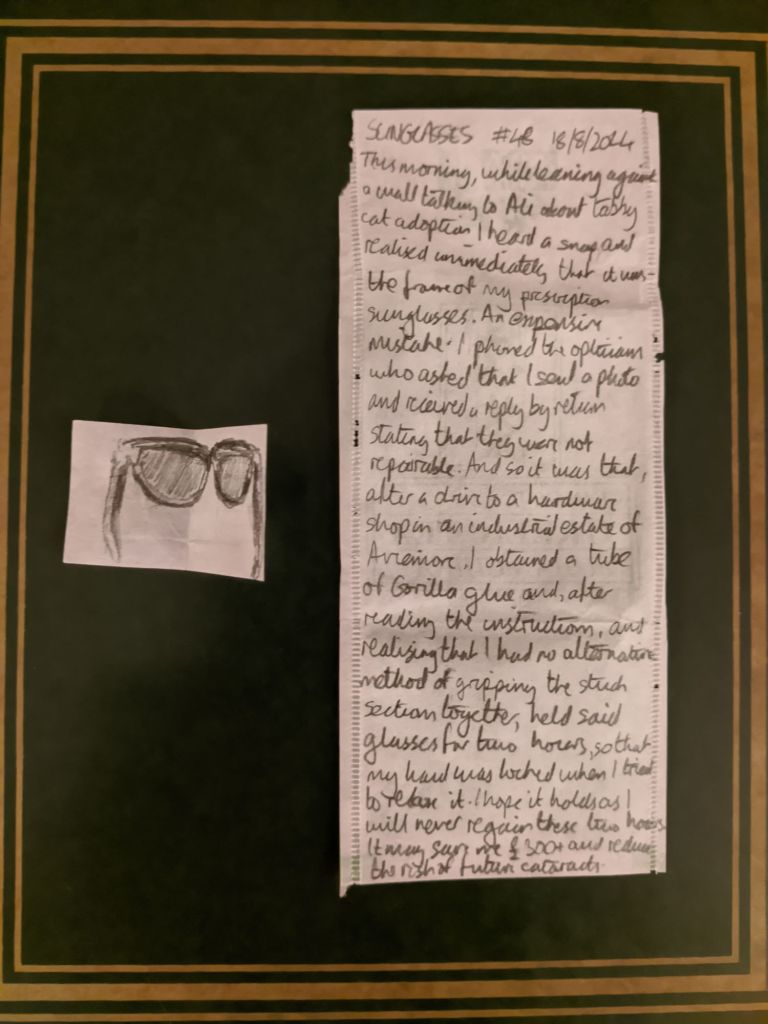 SUNGLASSES #48 18/8/2024
This morning, while leaning against
a wall talking to Ali about tabby
cat adoption I heard a snap and
realised immediately that it was
the frame of my prescription
sunglasses. An expensive
mistake. I phoned the opticians
who asked that I send a photo
and received a reply by return
stating that they were not
repairable. And so it was that,
after a drive to a hardware
shop in an industrial estate of
Aviemore, I obtained a tube
of Gorilla glue and, after
reading the instructions, and
realising that I had no alternative
method of gripping the stuck
section together, held said
glasses for two hours, so that
my hand was locked when I tried
to release it. I hope it holds as I
will never regain these two hours.
It may save me £300+ and reduce
the risk of future cataracts.